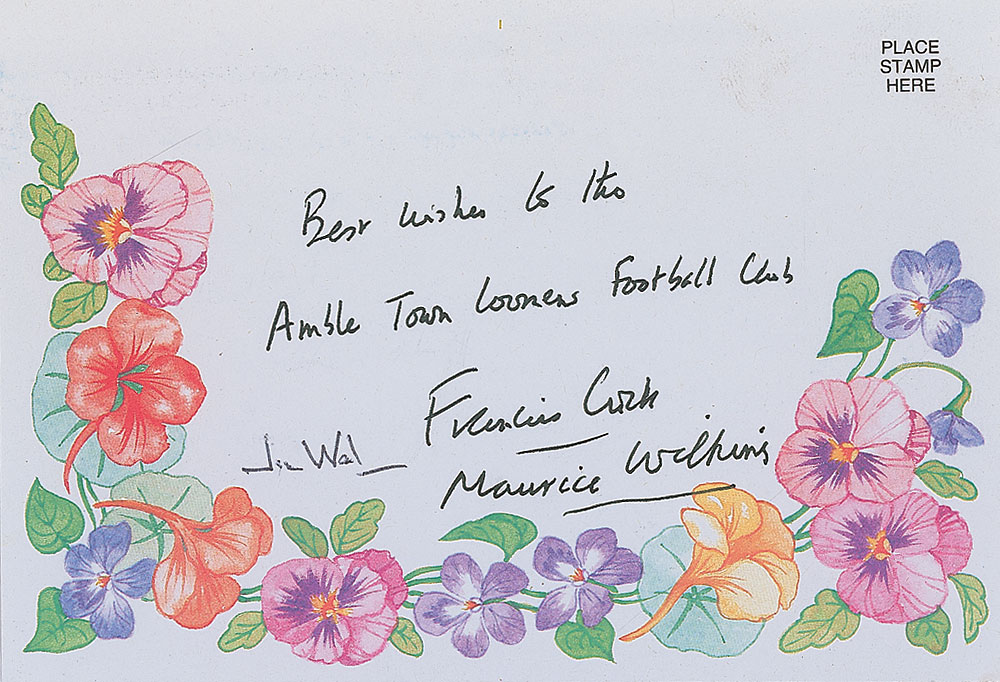 PLACE
STAMP
HERE
Best wishes to the
Amble Town Looneas Football Club
Francis Crick
Jim Wat
Maurice Wilkins